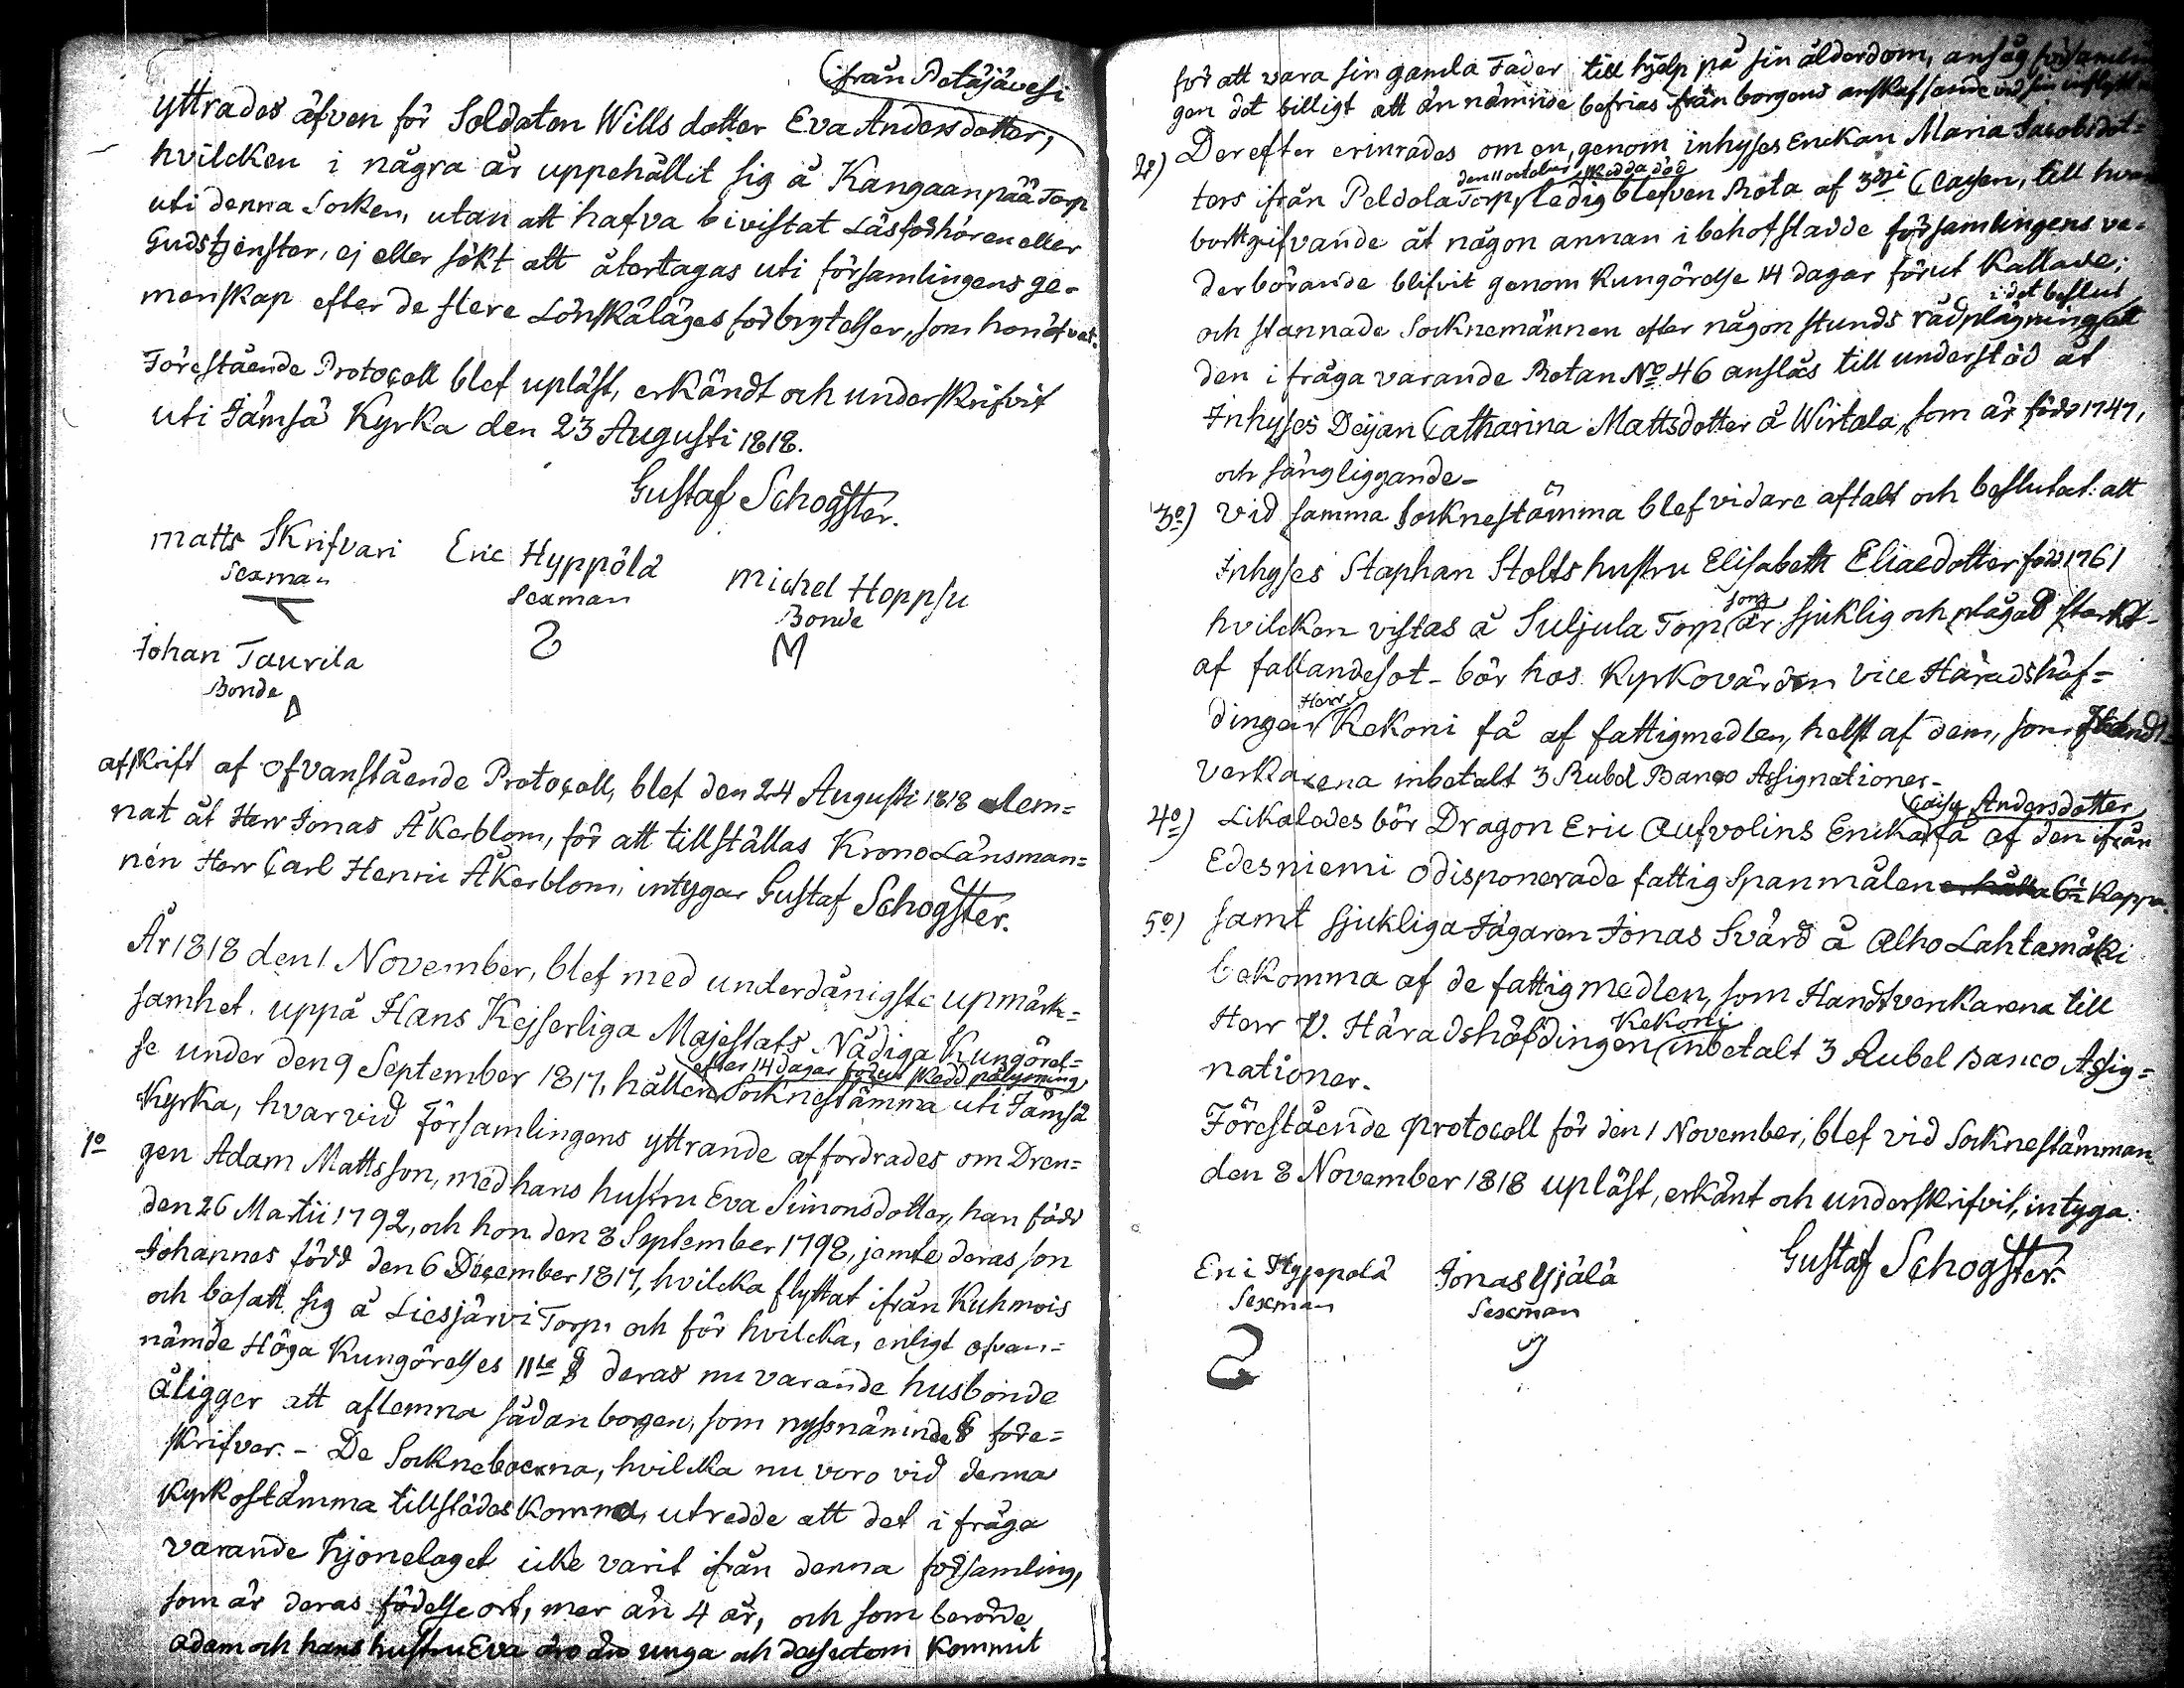 (ifrån Petäjävesi
yttrades äfven för Soldaten Wills dotter Eva Andersdotter,
hvilcken i några år uppehållit sig å Kangaanpää Torp
uti denna Socken, utan att hafva bivistat Läsförhören eller
Gudstjenster, ej eller sökt att återtagas uti församlingens ge-
menskap efter de flere Lönskaläges förbrytelser, som hon öfvat.
Förestående Protocoll blef upläst, erkändt och underskrifvit
uti Jämsä Kyrka den 23 Augusti 1818.
Gustaf Schogster.
Matts Skrifvari Eric Hyppölä Michel Hoppsu
Sexman Sexman Bonde
Johan Taurila
Bonde
afskrift af ofvanstående Protocoll, blef den 24 Augusti 1818 aflem=
nat åt Herr Jonas Åkerblom, för att tillställas Krono Länsman=
nen Herr Carl Henric Åkerblom, intygar Gustaf Schogster.
År 1818 den 1 November, blef med underdånigste upmärk=
samhet uppå Hans Kejserliga Majestäts Nådiga Kungörel=
efter 14 dagar förut skedd pålysning
se under den 9 September 1817, hållen Socknestämma uti Jämsä
Kyrka, hvarvid Församlingens yttrande affordrades om Dren=
1o gen Adam Mattsson, med hans hustru Eva Simonsdotter, han född
den 26 Martii 1792, och hon den 8 September 1798, jemte deras son
Johannes född den 6 December 1817, hvilcka flyttat ifrån Kuhmois
och bosatt sig å Liesjärvi Torp, och för hvilcka, enligt ofvan=
nämde Höga Kungörelses 11te § deras nu varande husbonde
åligger att aflemna sådan borgen, som nyssnämnde § före=
skrifver. - De Sockneboerna, hvilcka nu voro vid denna
Kyrkostämma tillstädes komna, utredde att det i fråga
varande hjonelaget icke varit ifrån denna församling,
som är deras födelse ort, mer än 4 år, och som berörde
Adam och hans hustru Eva äro unga och dessutom kommit
för att vara sin gamla Fader till hjelp på sin ålderdom, ansåg församlin
gen det billigt att än nämnde befrias från borgens anskaffande vid sin inflytt
2o) Derefter erinrades om en, genom inhyses Enckan Maria Jacobsdot=
den 11 october skedda död
ters ifrån Peldola Torp, ledig blefven Rota af 3dje Classen, till hvars
bortgifvande åt någon annan i behof stadde församlingens ve-
derbörande blifvit genom Kungörelse 14 dagar förut kallade;
i det beslut
och stannade Socknemännen efter någon stunds rådplägning att
den i fråga varande Rotan No 46 anslås till understöd åt
Inhyses Pejan Catharina Mattsdotter å Wirtala, som är född 1747,
och sängliggande -
3o) Vid samma Socknestämma blef vidare aftalt och beslutat: att
Inhyses Staphan Stolts hustru Elisabeth Eliaedotter född 1761
som
hvilcken vistas å Suljula Torp är sjuklig och plågad starkt -
af fallandesot - bör hos Kyrkovärden Vice Häradshöf=
Herr
dingen Kekoni få af fattigmedlen, helst af dem, som Handt=
verkarena inbetalt 3 Rubel Banco Assignationer -
Caisa Andersdotter
4o) Likaledes bör Dragon Eric Aufvolins Encka få af den ifrån
Edesniemi odisponerade fattig Spanmålen erhålla 6½ Kappa.
5o) samt sjukliga Jägaren Jonas Svärd å Alho Lahtamäki
bekomma af de fattig medlen, som Handtverkarena till
Kekoni
Herr V. Häradshöfdingen inbetalt 3 Rubel Banco Assig=
nationer.
Förestående protocoll för den 1 November, blef vid Socknestämman
den 8 November 1818 upläst, erkänt och underskrifvit, intyga.
Gustaf Schogster.
Eric Hyppölä Jonas Yijälä
Sexman Sexman